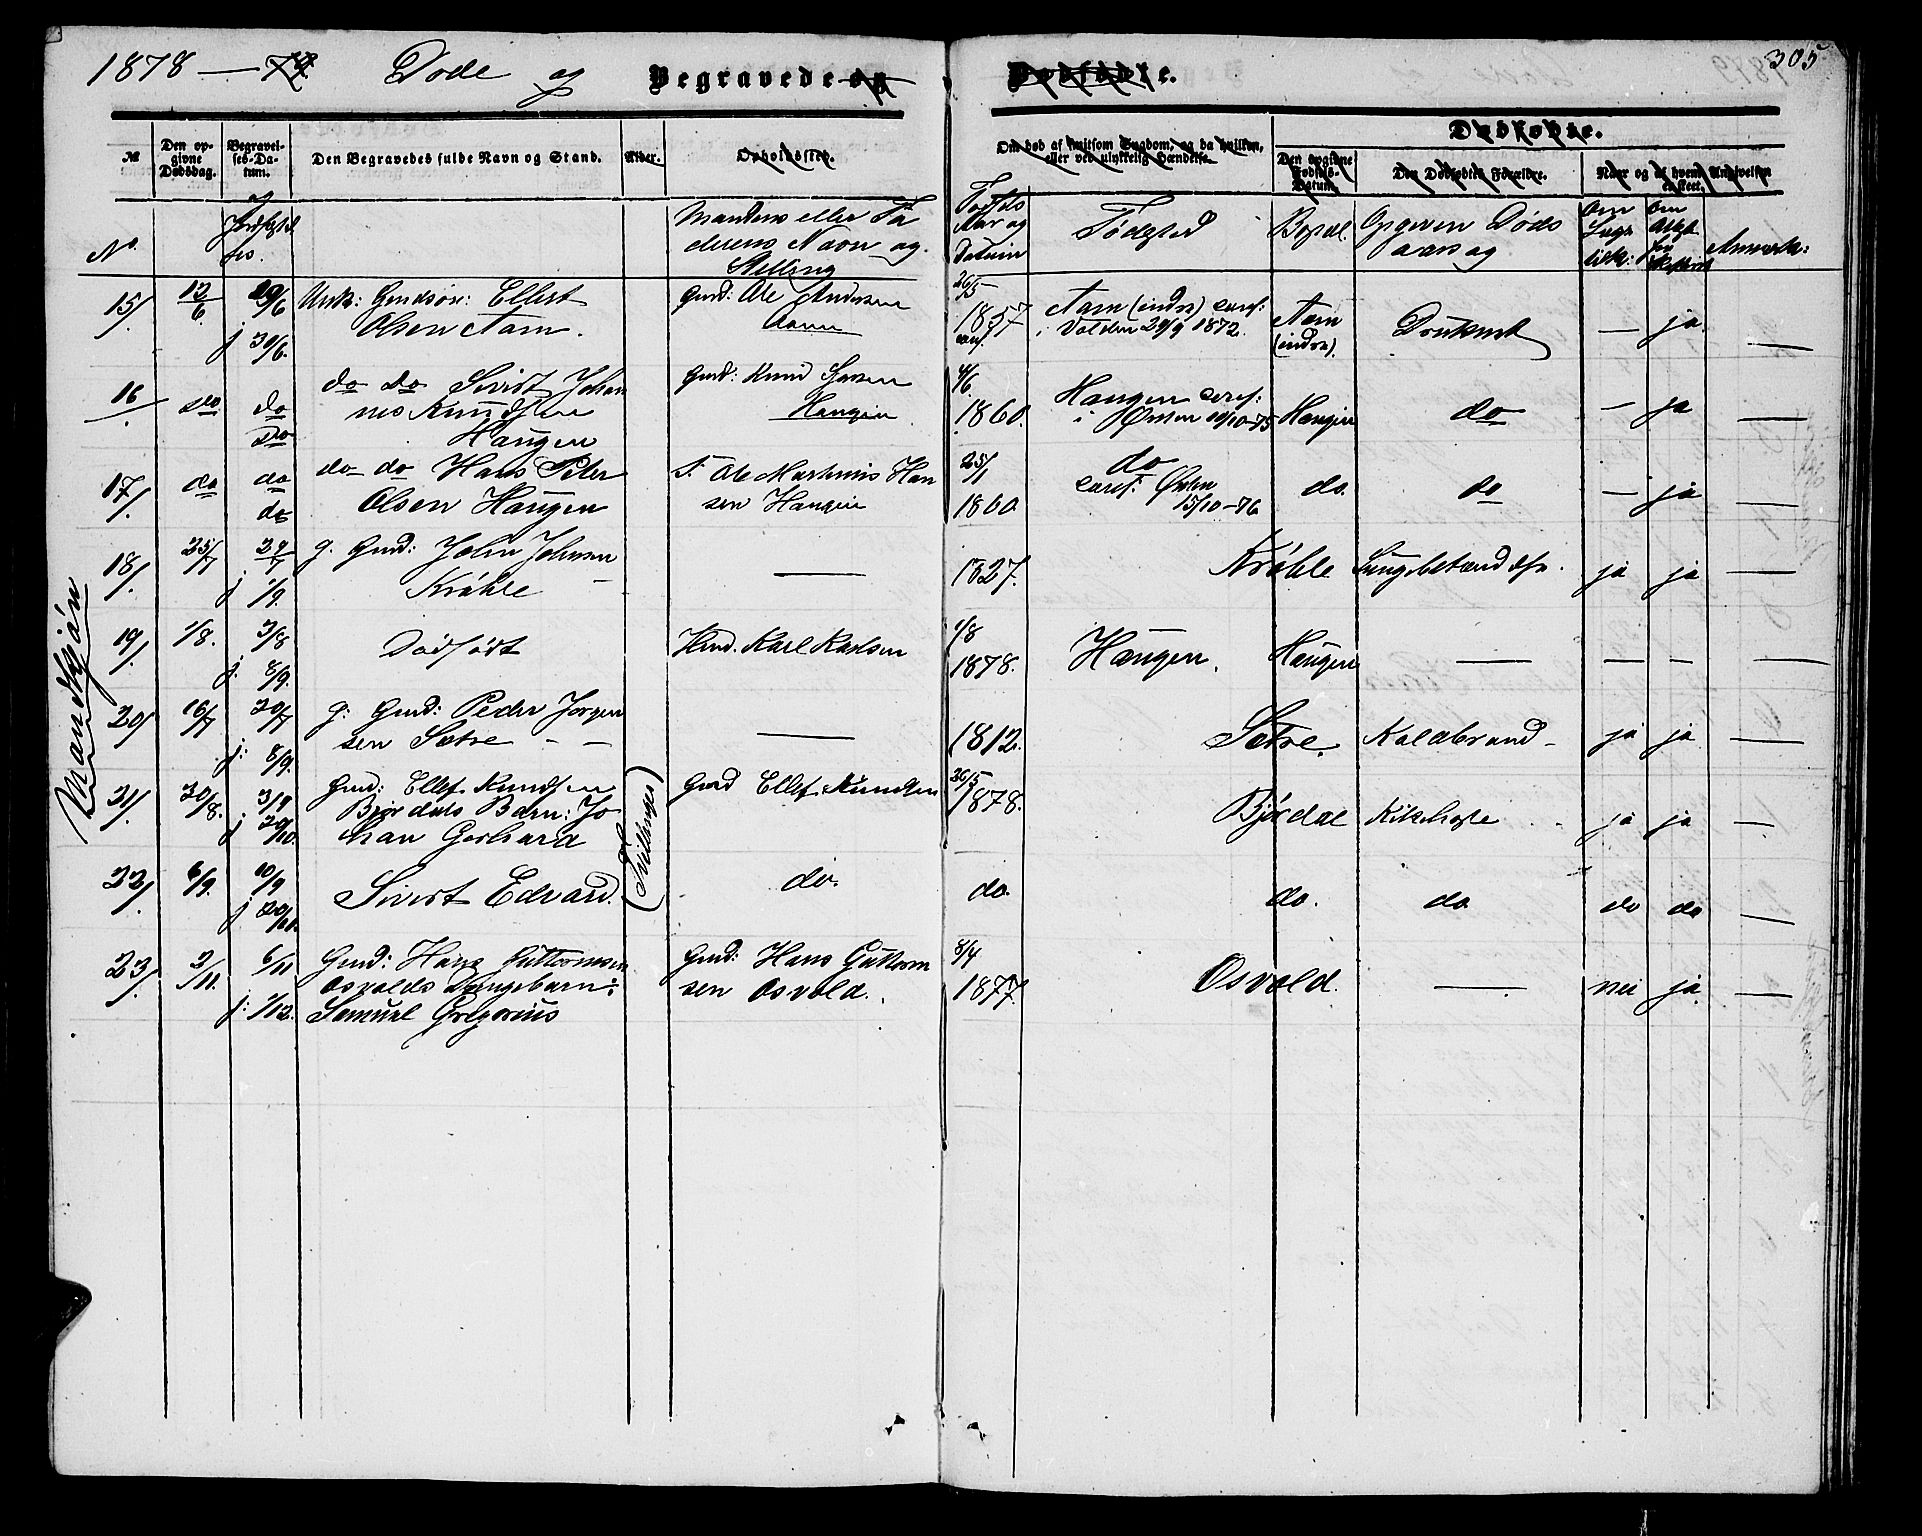 1878 — 79. Døde og Begravede og Dødfødte. 305
Dødfødte.
No. Den opgivne Dødsdag. Begravelses-Datum. Den Begravedes fulde Navn og Stand. Alder. Opholdssted. Om død af smitsom Sygdom, og da hvilken, eller ved ulykkelig Hændelse. Den opgivne Fødsels-Datum. Den Dødfødtes Forældre. Naar og af hvem Angivelsen er skeet.
No. Jordfæstelses. Mandens eller Faderens Navn og Stilling Fødsels Aar og Datum Fødested Bopæl. Opgiven Døds aarsag Om Læge Anmærk:
Mandkjøn
15/ 12/6 29/6 Unk: Gmdsøn: Ellert Gmd: Ole Andersen 26/5 Aam (indre) conf: Aam
j 30/6. Olsen Aam. Aam 1857 i Volden 29/9 1872. (indre). Druknet — ja —
16 do do do do Sivert Johan Gmd: Knud 4/6 Haugen conf:
do nes Knudsen Haugen 1860. i Ørsten 10/10-75 Haugen do — ja —
Haugen
17/ do do do do Hans Peter F. Ole Martinus Han 25/1 do
do Olsen Haugen sen Haugen 1860 conf: Ørsten 15/10-76 do. do — ja —
18/ 25/7 29/7 g. Gmd: John Johnsen
j 1/9. Kråhle — 1827. Kråhle Lungebetændelse. ja ja —
19/ 1/8. 3/8 Dødfødt Hmd. Karl Karlsen 1/8
j. 8/9. 1878. Haugen. Haugen — — — —
20/ 16/7 20/7 g: Gmd: Peder Jørgen
j: 8/9. sen Sætre — 1812. Sætre. Koldbrand ja ja
21/ 30/8. 3/9 Gmd: Ellef Knudsen Gmd Ellef Knudsen 26/5
j 20/10. Bjørdals Barn: Jo 1878. Bjørdal Kikhoste ja ja —
han Gerhard (Tvillinger)
22/ 6/9. 10/9 Sivert Edvard. do. do. do. do do do —
j
23/ 2/11. 6/11 Gmd: Hans Guttormsen Gmd: Hans Guttorm 8/4
Osvolds Drengebarn: sen Osvold. 1877. Osvold. — nei ja. —
j: 1/12. Samuel Gregorius